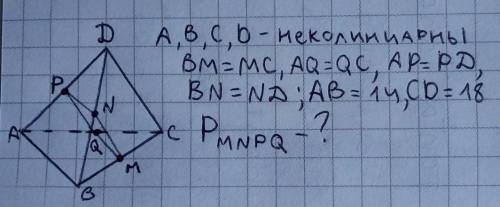 D
A, B, C, D - неколиниарны
BM=MC, AQ=QC, AP=PD,
BN=ND; AB=14, CD=18
P
N
A
Q
C
P_MNPQ - ?
M
B